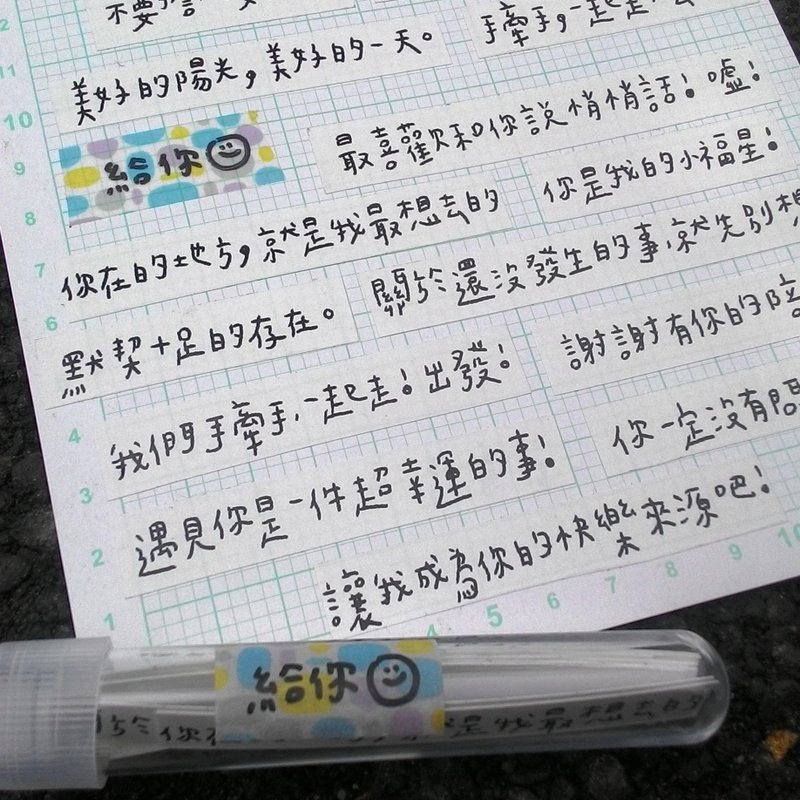 不要
手牽手，一起走
美好的陽光，美好的一天。
給你
最喜歡和你說悄悄話！噓！
你是我的小福星！
你在的地方，就是我最想去的
關於還沒發生的事，就先別想
默契十足的存在。
謝謝有你的陪
我們手牽手，一起走！出發！
你一定沒有問
遇見你是一件超幸運的事！
讓我成為你的快樂來源吧！
12
11
10
9
8
7
6
4
3
2
1
4
5
6
7
8
9
10
給你
於你在
是我最想去的